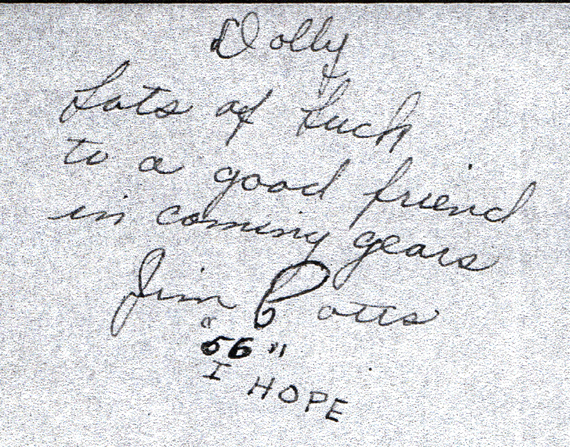 Dolly
Lots of Luck
to a good friend
in coming years
Jim Potts
"56"
I HOPE